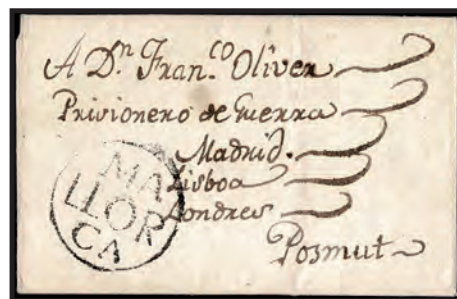 A Dn. Fran.co Oliver
Prisionero de Guerra
Madrid.
Lisboa
Londres
Posmut
MA
LLOR
CA